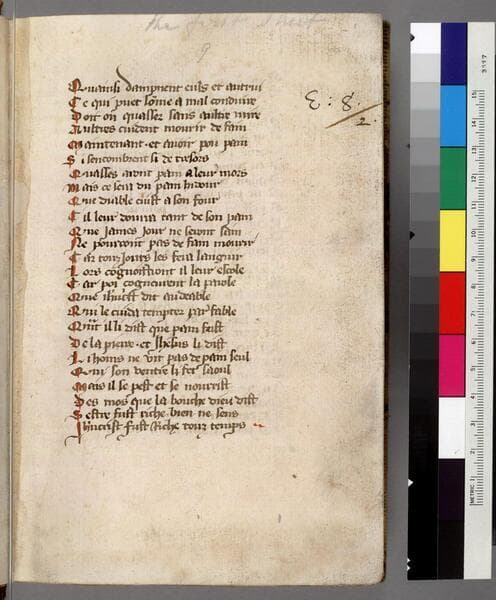 the first sheet
9
E : 8.
2.
Quainsi dampnent euls et autrui
Ce qui puet lomme a mal conduire
Doit on quasser sans aultre nuire
Aultres cuident mourir de faim
Maintenant et auoir pou pain
Si sencombrent si de tresors
Quasses auront pain a leur mors
Mais ce sera du pain
Que diable cuist a son four
Cil leur donrra tant de son pain
Que James jour ne seront sain
Ne pourront pas de faim mourir
Car tousjours les fera languir
Lors cognoistront il leur escole
Car poi cogneurent la parole
Que ihucrist dit au deable
Qui le cuida tempter par fable
Quant il li dist que pain feist
De la pierre et Jhesus li dist
Li homs ne vit pas de pain seul
Qui son ventre li fet saoul
Mais il se pest et se nourrist
Des mos que la bouche dieu dist
Sestre fust riche bien ne sens
Jhucrist fust riche touz temps